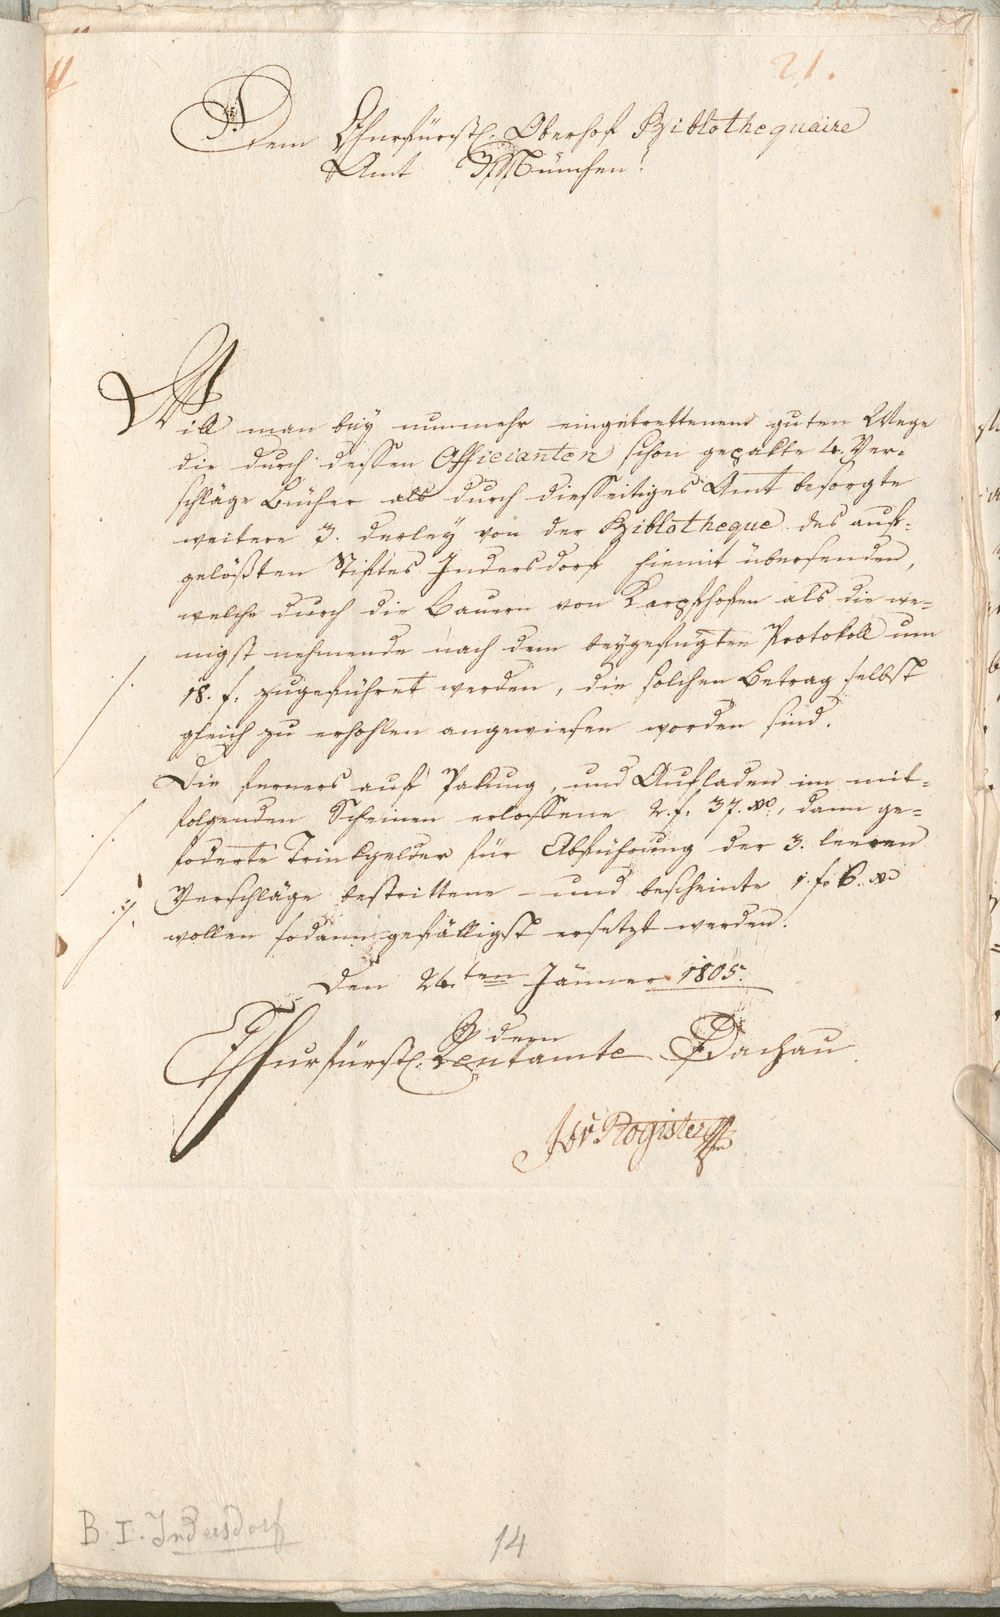 21.
Dem Churfürstl. Oberhof Biblothequaire
Amt München!
Will man bey nunmehr eingetrettenem guten Wege
die durch dessen Officianten schon gepakte 4. Ver-
schläge Bücher als durch diesseitiges Amt besorgte
weitere 3. derley von der Biblotheque des auf-
gelößten Stiftes Indersdorf hiemit übersenden,
welche durch die Bauern von Karpfhofen als die we-
nigst nehmende nach dem beygefügten Protokoll um
18. f. zugeführet werden, die solchen Betrag selbst
gleich zu erhohlen angewiesen worden sind.
Die ferners auf Pakung, und Aufladen im mit-
folgenden Scheinen erlossene 2. f. 37. xr, dann ge-
foderte Trinkgelder für Abführung der 3. leeren
Verschläge bestrittene und bescheinte 1. f. 6. xr
wollen sodann gefälligst ersetzt werden.
Den 24.ten Jänner 1805.
Churfürstl. Rentamte Dachau
B. I. Indersdorf
14